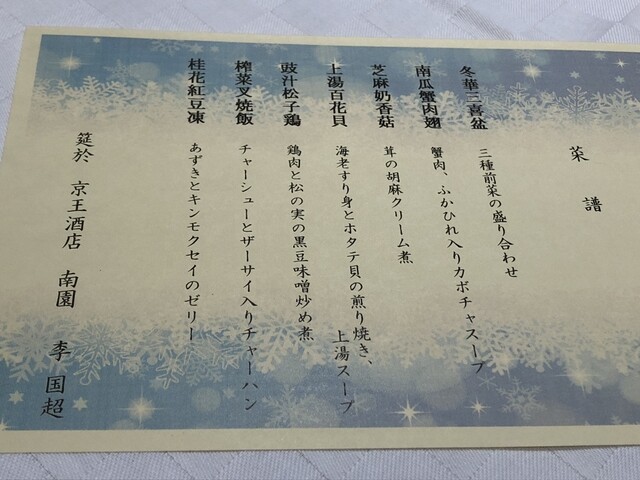 菜譜
冬華三喜盆 三種前菜の盛り合わせ
南瓜蟹肉翅 蟹肉、ふかひれ入りカボチャスープ
芝麻奶香菇 茸の胡麻クリーム煮
上湯百花貝 海老すり身とホタテ貝の煎り焼き、
上湯スープ
豉汁松子鶏 鶏肉と松の実の黒豆味噌炒め煮
榨菜叉焼飯 チャーシューとザーサイ入りチャーハン
桂花紅豆凍 あずきとキンモクセイのゼリー
筵於 京王酒店 南園 李国超